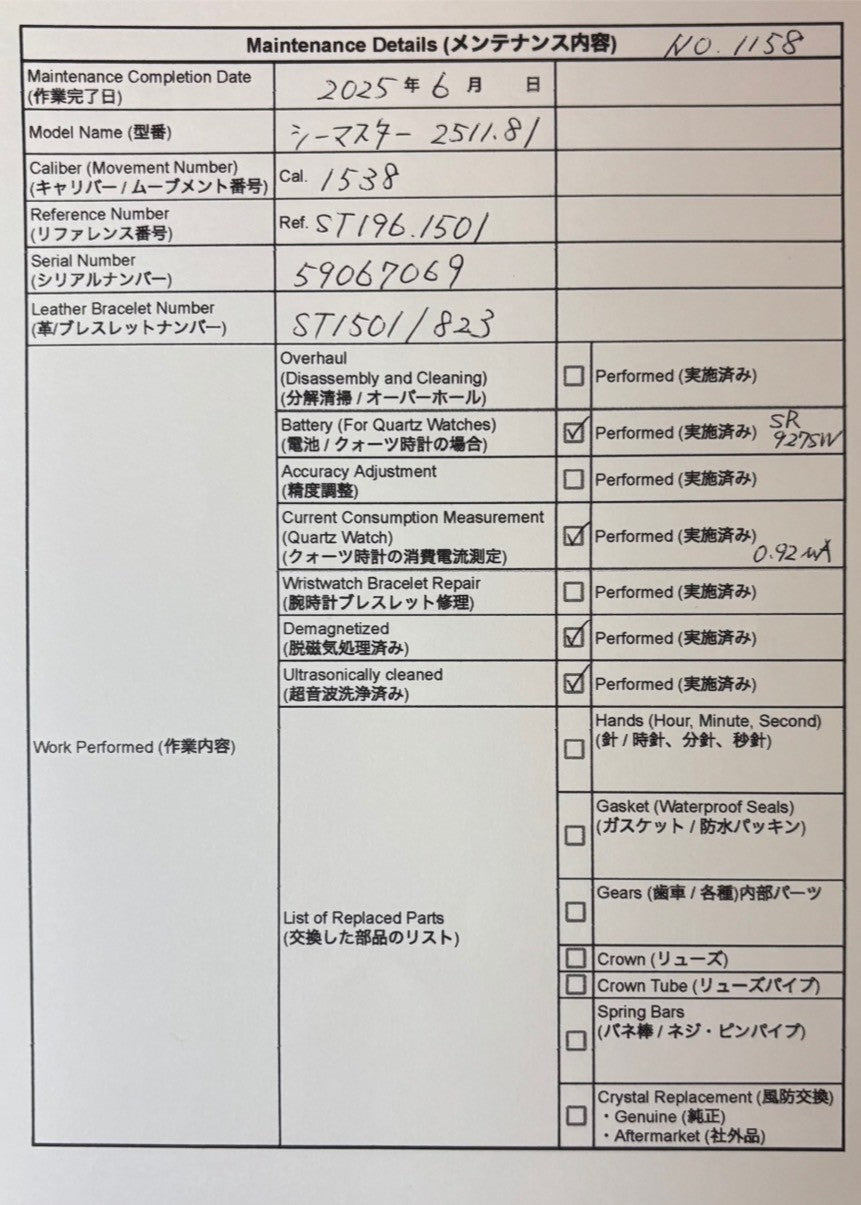 Maintenance Details (メンテナンス内容) NO.1158
Maintenance Completion Date
(作業完了日)
2025年6月 日
Model Name (型番)
シーマスター 2511.81
Caliber (Movement Number)
(キャリバー / ムーブメント番号)
Cal. 1538
Reference Number
(リファレンス番号)
Ref. ST196.1501
Serial Number
(シリアルナンバー)
59067069
Leather Bracelet Number
(革/ブレスレットナンバー)
ST1501/823
Work Performed (作業内容)
Overhaul
(Disassembly and Cleaning)
(分解清掃 / オーバーホール)
Performed (実施済み)
Battery (For Quartz Watches)
(電池 / クォーツ時計の場合)
Performed (実施済み) SR
927SW
Accuracy Adjustment
(精度調整)
Performed (実施済み)
Current Consumption Measurement
(Quartz Watch)
(クォーツ時計の消費電流測定)
Performed (実施済み)
0.92μA
Wristwatch Bracelet Repair
(腕時計ブレスレット修理)
Performed (実施済み)
Demagnetized
(脱磁気処理済み)
Performed (実施済み)
Ultrasonically cleaned
(超音波洗浄済み)
Performed (実施済み)
List of Replaced Parts
(交換した部品のリスト)
Hands (Hour, Minute, Second)
(針 / 時針、分針、秒針)
Gasket (Waterproof Seals)
(ガスケット / 防水パッキン)
Gears (歯車 / 各種)内部パーツ
Crown (リューズ)
Crown Tube (リューズパイプ)
Spring Bars
(バネ棒 / ネジ・ピンパイプ)
Crystal Replacement (風防交換)
・Genuine (純正)
・Aftermarket (社外品)